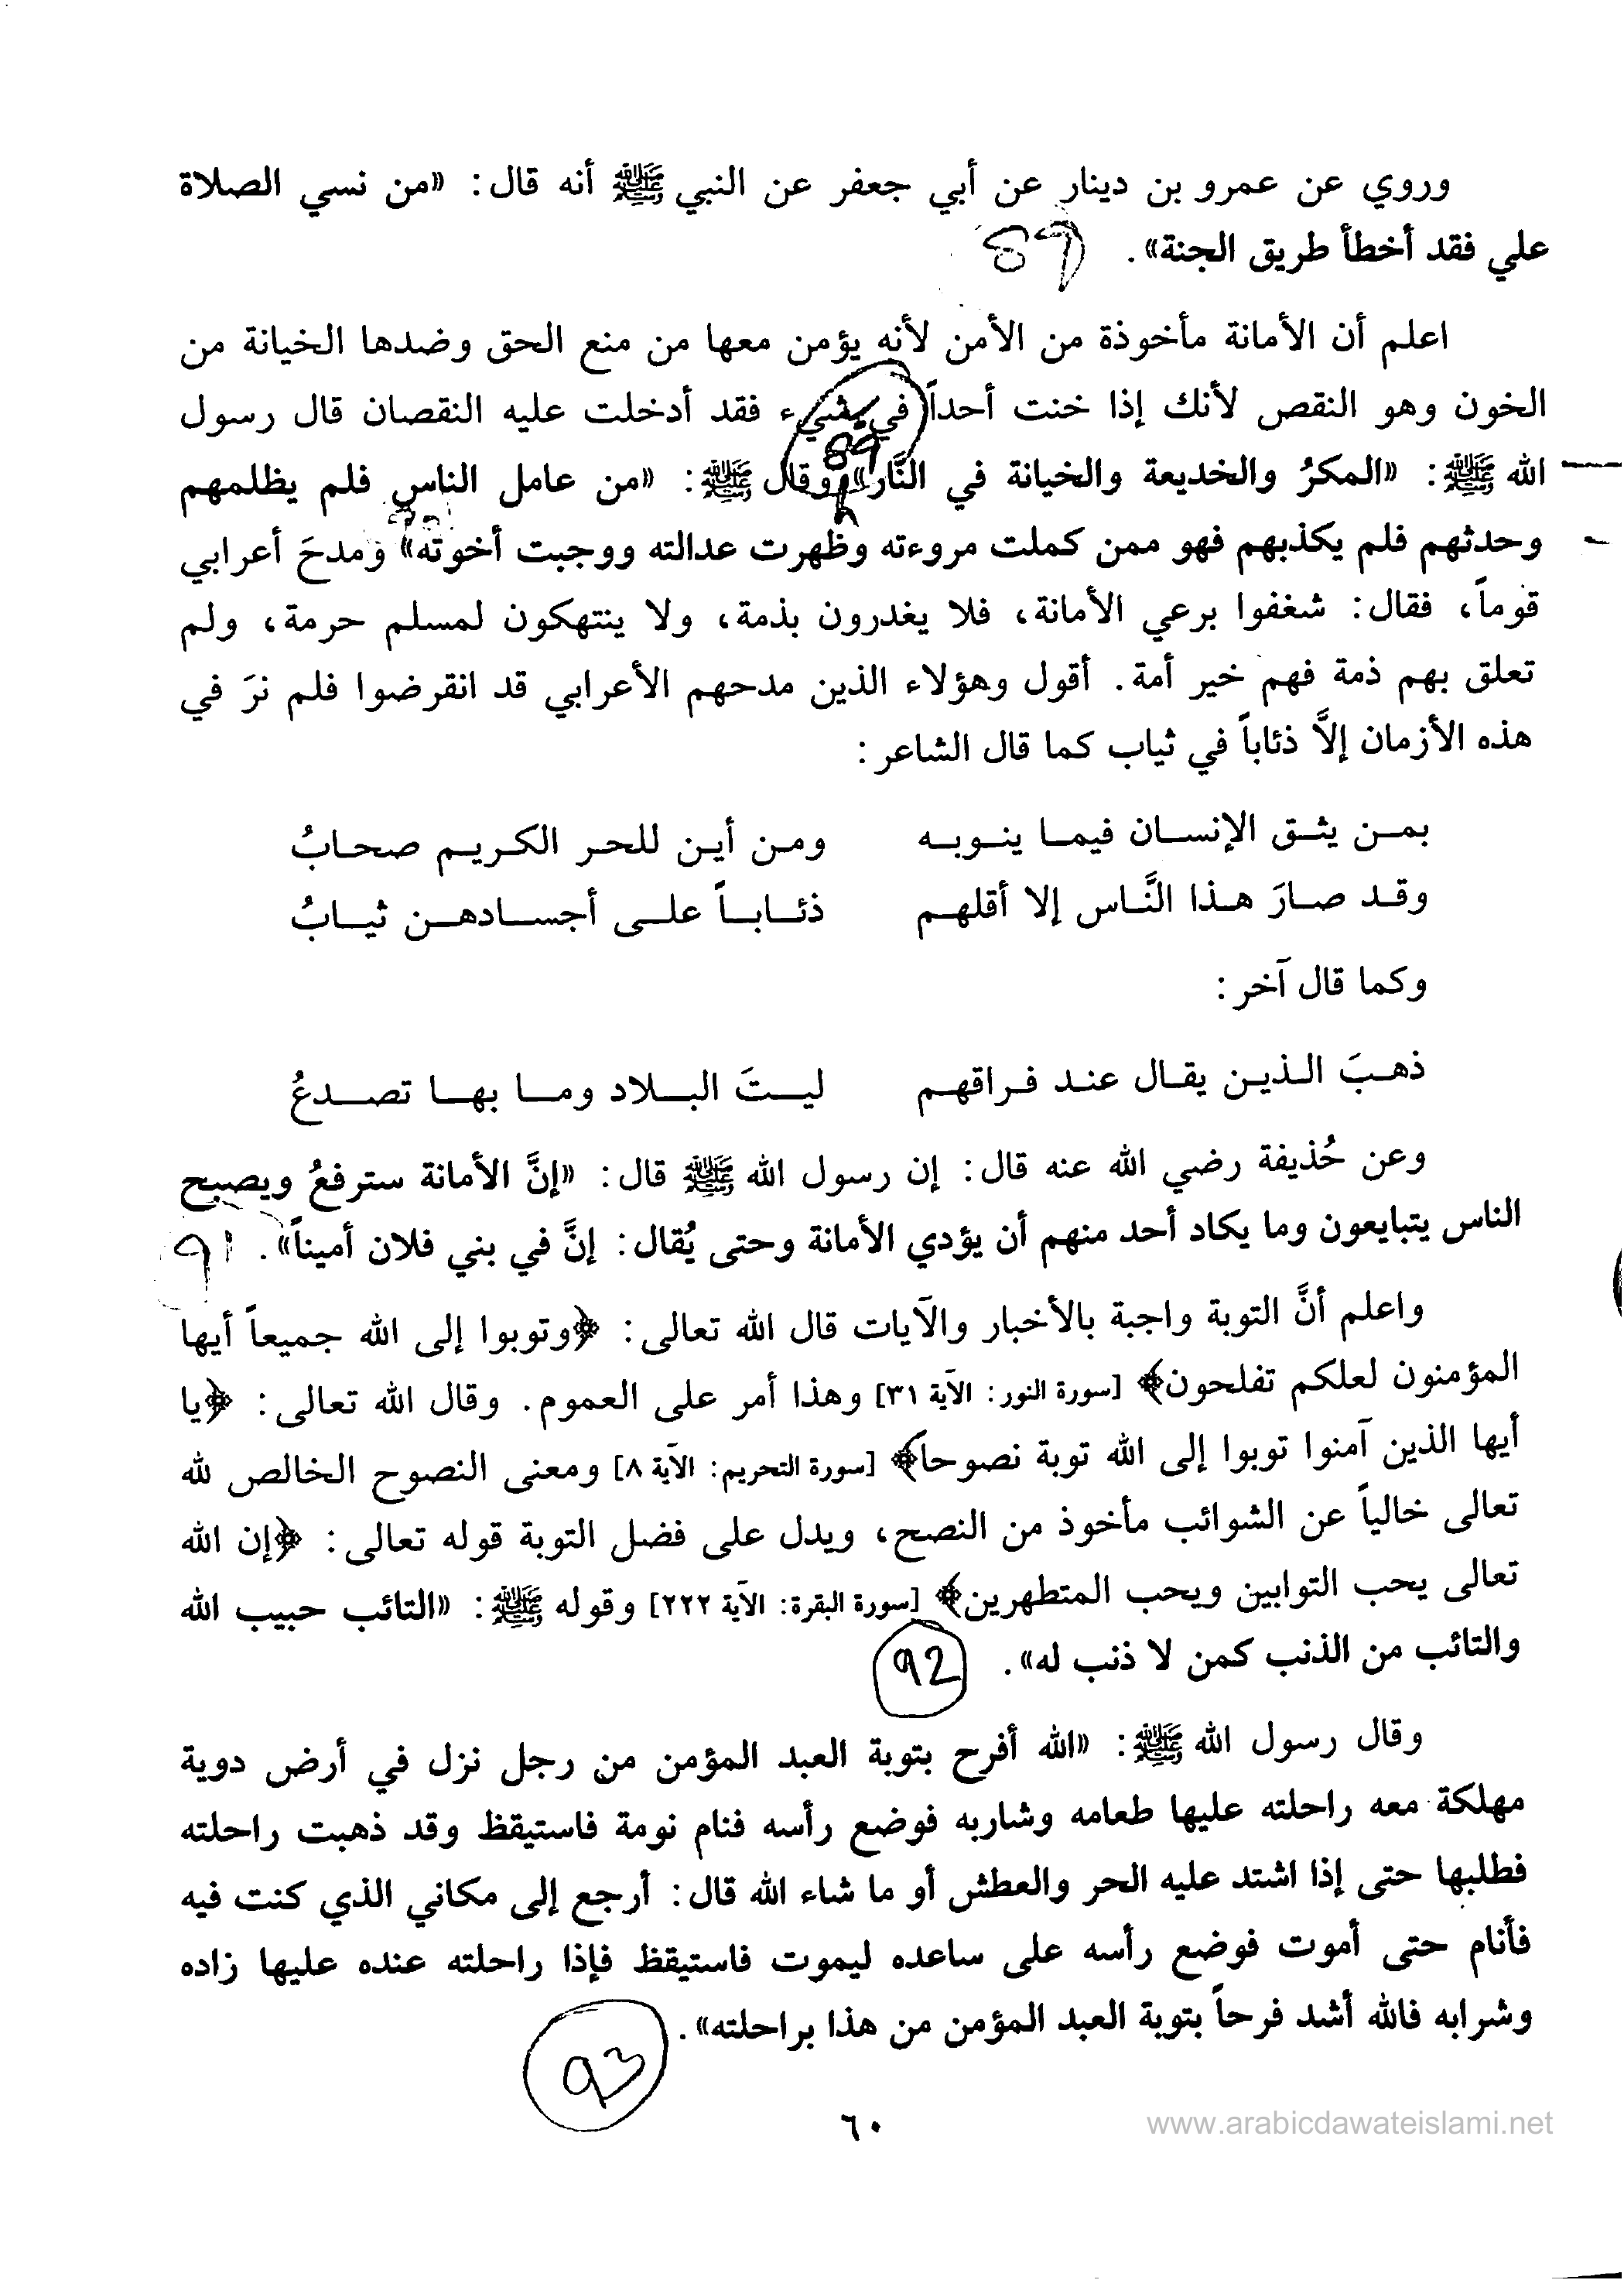 وروي عن عمرو بن دينار عن أبي جعفر عن النبي ﷺ أنه قال: «من نسي الصلاة
علي فقد أخطأ طريق الجنة». 89
اعلم أن الأمانة مأخوذة من الأمن لأنه يؤمن معها من منع الحق وضدها الخيانة من
الخون وهو النقص لأنك إذا خنت أحداً في شيء فقد أدخلت عليه النقصان قال رسول
الله ﷺ: «المكرُ والخديعة والخيانة في النَّار» وقال ﷺ: «من عامل الناس فلم يظلمهم
وحدثهم فلم يكذبهم فهو ممن كملت مروءته وظهرت عدالته ووجبت أخوته» ومدحَ أعرابي
قوماً، فقال: شغفوا برعي الأمانة، فلا يغدرون بذمة، ولا ينتهكون لمسلم حرمة، ولم
تعلق بهم ذمة فهم خير أمة. أقول وهؤلاء الذين مدحهم الأعرابي قد انقرضوا فلم نرَ في
هذه الأزمان إلاَّ ذئاباً في ثياب كما قال الشاعر:
بمن يثق الإنسان فيما ينوبه ومن أين للحر الكريم صحابُ
وقد صارَ هذا النَّاس إلا أقلهم ذئاباً على أجسادهن ثيابُ
وكما قال آخر:
ذهبَ الذين يقال عند فراقهم ليتَ البلاد وما بها تصدعُ
وعن حُذيفة رضي الله عنه قال: إن رسول الله ﷺ قال: «إنَّ الأمانة سترفعُ ويصبح
الناس يتبايعون وما يكاد أحد منهم أن يؤدي الأمانة وحتى يُقال: إنَّ في بني فلان أميناً». 91
واعلم أنَّ التوبة واجبة بالأخبار والآيات قال الله تعالى: ﴿وتوبوا إلى الله جميعاً أيها
المؤمنون لعلكم تفلحون﴾ [سورة النور: الآية ٣١] وهذا أمر على العموم. وقال الله تعالى: ﴿يا
أيها الذين آمنوا توبوا إلى الله توبة نصوحاً﴾ [سورة التحريم: الآية ٨] ومعنى النصوح الخالص لله
تعالى خالياً عن الشوائب مأخوذ من النصح، ويدل على فضل التوبة قوله تعالى: ﴿إن الله
تعالى يحب التوابين ويحب المتطهرين﴾ [سورة البقرة: الآية ٢٢٢] وقوله ﷺ: «التائب حبيب الله
والتائب من الذنب كمن لا ذنب له». 92
وقال رسول الله ﷺ: «الله أفرح بتوبة العبد المؤمن من رجل نزل في أرض دوية
مهلكة معه راحلته عليها طعامه وشاربه فوضع رأسه فنام نومة فاستيقظ وقد ذهبت راحلته
فطلبها حتى إذا اشتد عليه الحر والعطش أو ما شاء الله قال: أرجع إلى مكاني الذي كنت فيه
فأنام حتى أموت فوضع رأسه على ساعده ليموت فاستيقظ فإذا راحلته عنده عليها زاده
وشرابه فالله أشد فرحاً بتوبة العبد المؤمن من هذا براحلته».
93
٦٠
www.arabicdawateislami.net